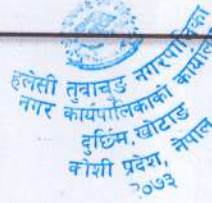 हलेसी तुवाचुङ नगरपालिका
नगर कार्यपालिकाको कार्यालय
दुर्छिम, खोटाङ
कोशी प्रदेश, नेपाल
२०७३